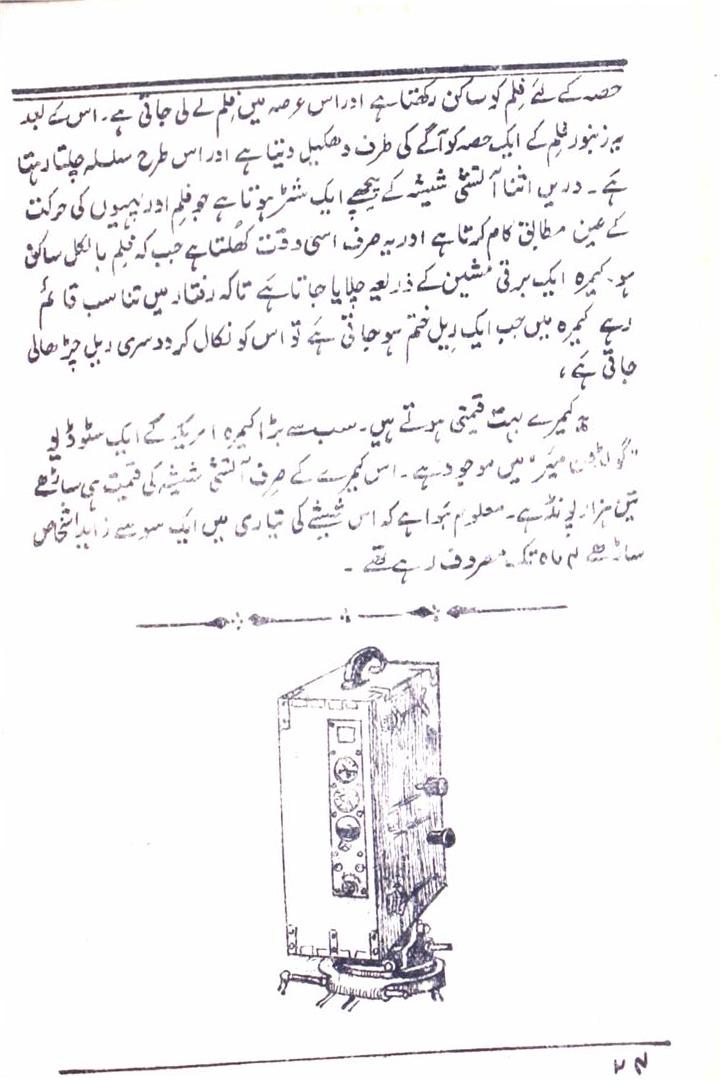 حصہ کے لئے فلم کو ساکن رکھتا ہے اور اس عرصہ میں فلم لے لی جاتی ہے۔ اس کے بعد
یہ زنبور فلم کے ایک حصہ کو آگے کی طرف دھکیل دیتا ہے اور اس طرح سلسلہ چلتا رہتا
ہے۔ دریں اثنا آتشی شیشہ کے پیچھے ایک شٹر ہوتا ہے جو فلم اور پہیوں کی حرکت
کے عین مطابق کام کرتا ہے اور یہ صرف اسی وقت کھلتا ہے جب کہ فلم بالکل ساکن
ہو۔ کیمرہ ایک برقی مشین کے ذریعہ چلایا جاتا ہے تاکہ رفتار میں تناسب قائم
رہے کیمرہ میں جب ایک ریل ختم ہو جاتی ہے تو اس کو نکال کر دوسری ریل چڑھالی
جاتی ہے،
یہ کیمرے بہت قیمتی ہوتے ہیں۔ سب سے بڑا کیمرہ امریکہ کے ایک سٹوڈیو
"گولڈون میئر" میں موجود ہے۔ اس کیمرے کے صرف آتشی شیشہ کی قیمت ہی ساڑھے
تین ہزار پونڈ ہے۔ معلوم ہوا ہے کہ اس شیشے کی تیاری میں ایک سو سے زاید اشخاص
ساڑھے ۴ ماہ تک مصروف رہے تھے۔